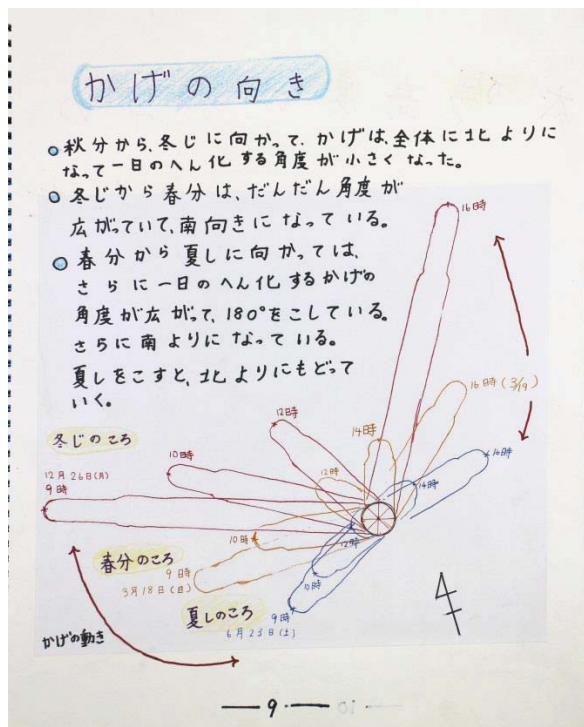 かげの向き
秋分から、冬じに向かって、かげは、全体に北よりに
なって一日のへん化する角度が小さくなった。
冬じから春分は、だんだん角度が
広がっていて、南向きになっている。
春分から夏しに向かっては、
さらに一日のへん化するかげの
角度が広がって、180°をこしている。
さらに南よりになっている。
夏しをこすと、北よりにもどって
いく。
16時
16時(3/19)
12時
14時
冬じのころ
10時
12月26日(月)
9時
12時
16時
14時
10時
12時
春分のころ
9時
3月18日(日)
10時
夏しのころ
9時
6月23日(土)
かげの動き
9